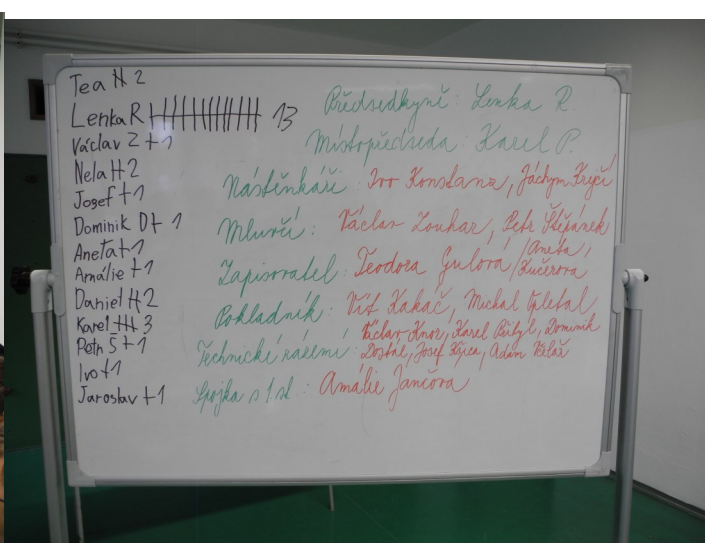 Tea ++ 2
Lenka R +++++++++++++ 13
Václav Z + 1
Nela ++ 2
Josef + 1
Dominik D + 1
Aneta + 1
Amálie + 1
Daniel ++ 2
Karel +++ 3
Petr Š + 1
Ivo + 1
Jaroslav + 1
Předsedkyně: Lenka R.
Místopředseda: Karel P.
Nástěnkáři: Ivo Konstanz, Jáchym
Mluvčí: Václav Zouhar, Petr Štěpánek
Zapisovatel: Teodora Gulová / Aneta Kučerová
Pokladník: Vít Kakáč, Michal
Technické zázemí: Václav Knor, Karel Přibyl, Dominik
Dostál, Josef, Adam
Spojka s 1. st.: Amálie Jančová